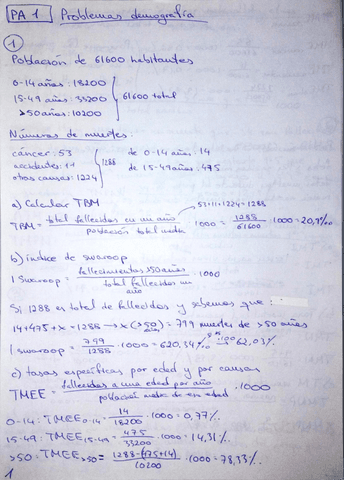 PA 1 Problemas demografía
1
Población de 61600 habitantes
0-14 años: 18200
15-49 años: 33200 61600 total
>50 años: 10200
Números de muertes:
cáncer: 53 de 0-14 años: 14
accidentes: 11 1288 de 15-49 años: 475
otras causas: 1224
a) Calcular TBM
53+11+1224=1288
TBM = total fallecidos en un año / población total media · 1000 = 1288 / 61600 · 1000 = 20,9‰
b) índice de swaroop
I swaroop = fallecimientos >50 años / total fallecidos un año · 1000
Si 1288 es total de fallecidos y sabemos que:
14+475+x=1288 → x (>50 años) = 799 muertes de >50 años
I swaroop = 799 / 1288 · 1000 = 620,34‰ → 62,03%
c) tasas específicas por edad y por causas
TMEE = fallecidos a una edad por año / población media de esa edad · 1000
0-14: TMEE 0-14 = 14 / 18200 · 1000 = 0,77‰
15-49: TMEE 15-49 = 475 / 33200 · 1000 = 14,31‰
>50: TMEE >50 = 1288-(475+14) / 10200 · 1000 = 78,33‰
1